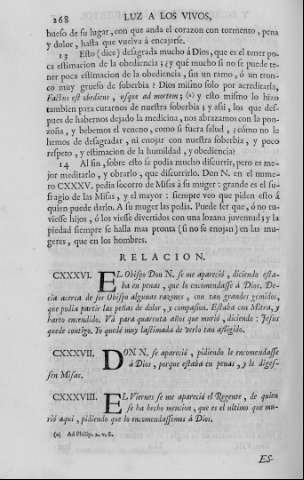 268 LUZ A LOS VIVOS,
hueso de su lugar, con que anda el corazon con tormento, pena
y dolor, hasta que vuelva á encajarse.
13 Esto (dice) desagrada mucho á Dios, que es el tener po-
ca estimacion de la obediencia; ¿y qué mucho si no se puede te-
ner poca estimacion de la obediencia, sin un ramo, ó un tron-
co muy grueso de soberbia? Dios mismo solo por acreditarla,
Factus est obediens, usque ad mortem; (a) y esto mismo lo hizo
tambien para curarnos de nuestra soberbia; y asi, los que des-
pues de habernos dejado la medicina, nos abrazamos con la pon-
zoña, y bebemos el veneno, como si fuera salud, ¿cómo no le
hemos de desagradar, ni enojar con nuestra soberbia, y poco
respeto, y estimacion de la humildad, y obediencia?
14 Al fin, sobre esto se podia mucho discurrir, pero es me-
jor meditarlo, y obrarlo, que discurrirlo. Don N. en el nume-
ro CXXXV. pedia socorro de Misas á su muger: grande es el su-
fragio de las Misas, y el mayor: siempre veo que piden esto á
quien puede darlo. A su muger las pedia. Puede ser que, ó no tu-
viesse hijos, ó los viesse divertidos con una lozana juventud, y la
piedad siempre se halla mas pronta (si no se enojan) en las mu-
geres, que en los hombres.
RELACION.
CXXXVI. EL Obispo Don N. se me apareció, diciendo esta-
ba en penas, que lo encomendasse á Dios. De-
cia acerca de ser Obispo algunas razones, con tan grandes gemidos,
que podia partir las peñas de dolor, y compasion. Estaba con Mitra, y
harto encendido. Vá para quarenta años que murió, diciendo: Jesus
quede contigo. Yo quedé muy lastimada de verlo tan afligido.
CXXXVII. DON N. se apareció, pidiendo lo encomendasse
á Dios, porque estaba en penas, y le diges-
sen Misas.
CXXXVIII. EL Viernes se me apareció el Regente, de quien
se ha hecho mencion, que es el ultimo que mu-
rió aqui, pidiendo que lo encomendassemos á Dios.
(a) Ad Philip. 2. v. 8.
ES-